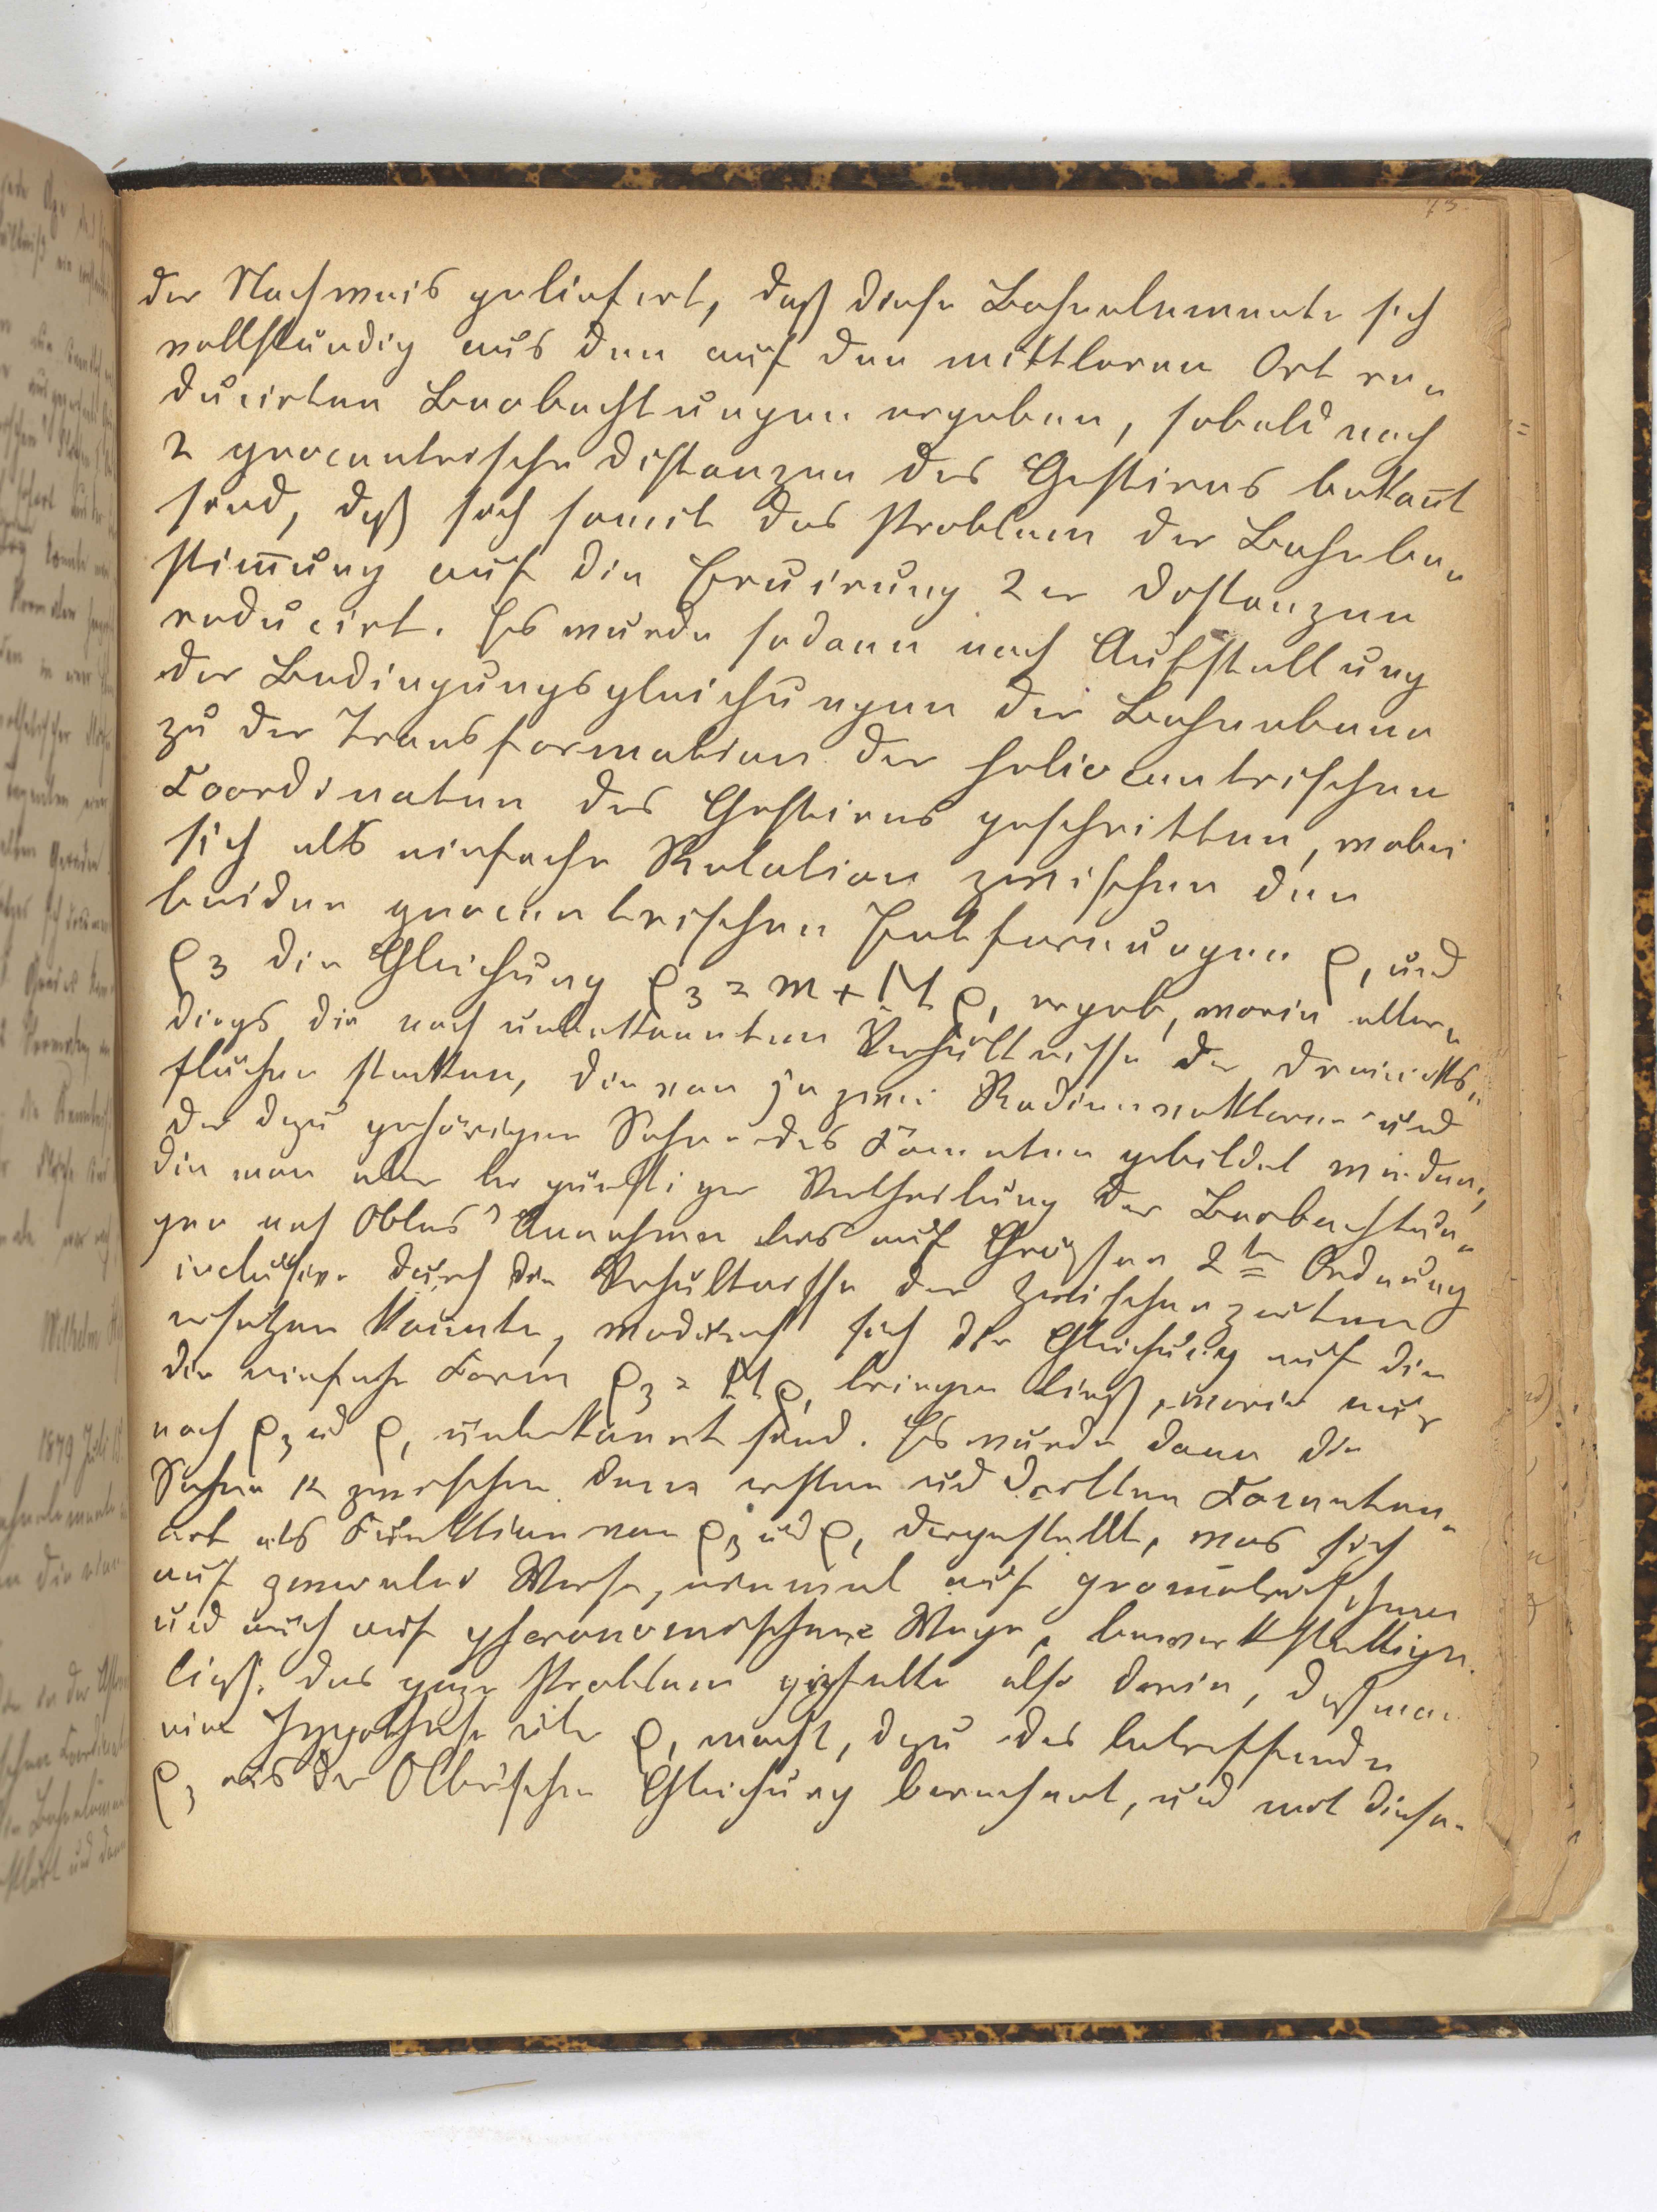 73.
der Nachweis geliefert, daß diese Bahnelemente sich
vollständig aus den auf den mittleren Ort re„
ducirten Beobachtungen ergeben, sobald nach
2 geocentrische Distanzen des Gestirns bekan̄t
sind, daß sich somit das Problem der Bahnbe„
stim̄ung auf die Eruirung 2er Distanzen
reducirt. Es wurde sodann nach Aufstellung
der Bedingungsgleichungen der Bahnebene
zu der Transformation der heliocentrischen
Coordinaten des Gestirns geschritten, wobei
sich als einfache Relation zwischen den
beiden geocentrischen Entfernungen ρ, und
ρ3 die Gleichung ρ3 = m + M ρ, ergab, worin aller„
dings die noch unbekannten Verhältnisse der Dreiecks„
flächen stecken, die von je zwei Radienvektoren und
der dazu gehörigen Sehne des Cometen gebildet werden,
die man aber bei günstiger Vertheilung der Beobachtun„
gen nach Olbers' Annahme bis auf Größen 2ter Ordnung
inclusive durch die Verhältnisse der Zwischenzeiten
ersetzen konnte, wodurch sich die Gleichung auf die
die einfache Form ρ3 = M ρ, bringen ließ, worin nur
noch ρ3 ud ρ, unbekannt sind. Es wurde dann die
Sehne k zwischen dem ersten und dritten Cometen„
ort als Funktion von ρ3 und ρ, dargestellt, was sich
auf zweierlei Weise, einmal auf geometrischem
und auch auf goniometrischem Wege, bewerkstelligen
ließ. Das ganze Problem gipfelte also darin, daß man
eine Hypothese über ρ, macht, dazu das betreffende
ρ3 aus der Olbers'schen Gleichung berechnet, und mit diesen